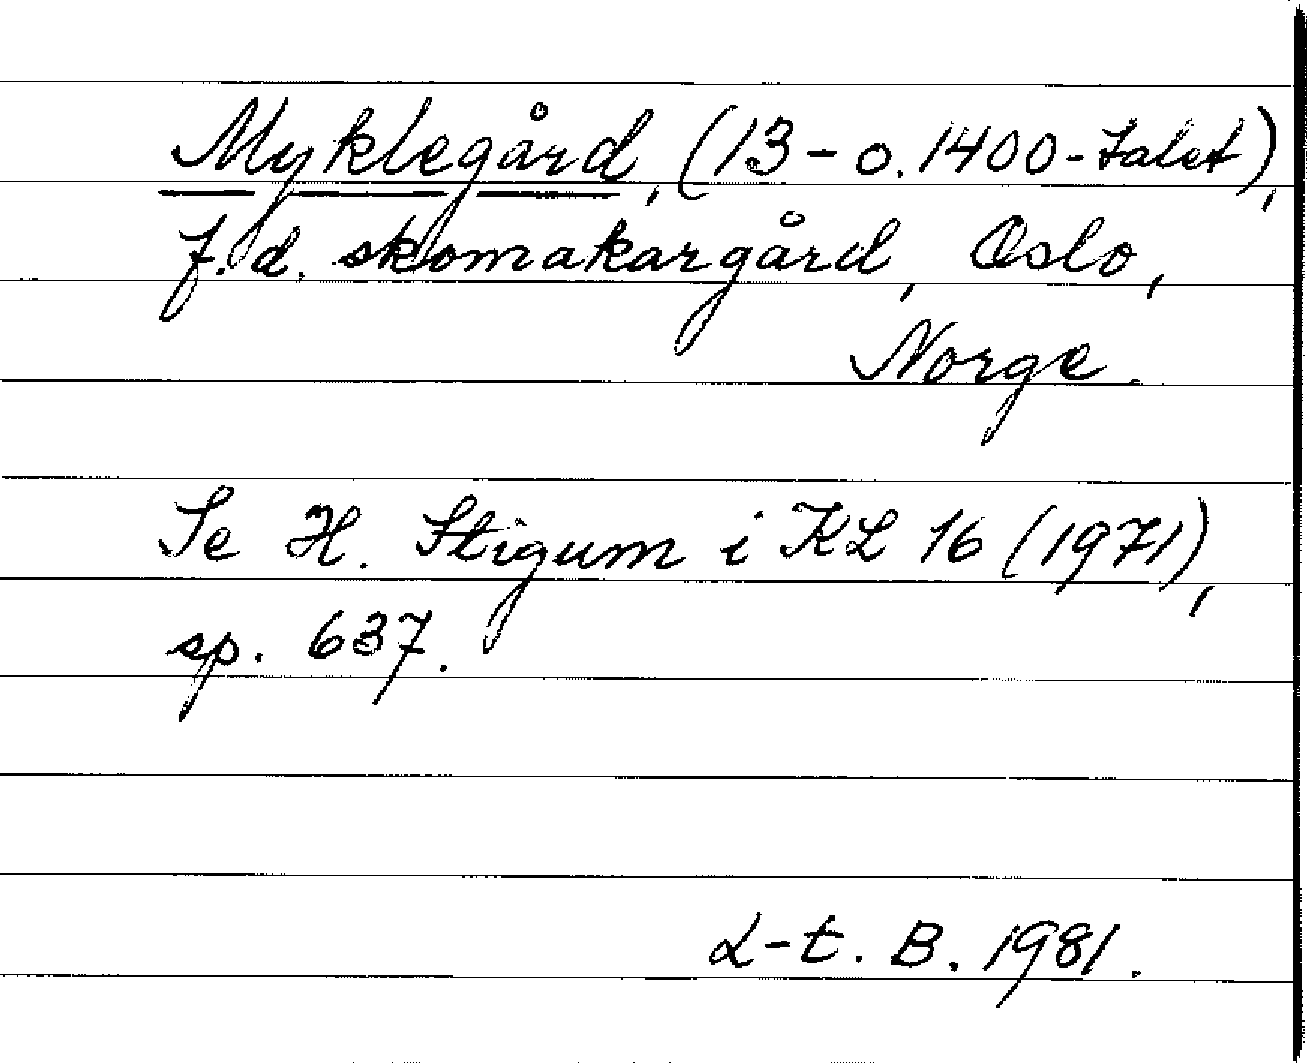 Myklegård, (13-o. 1400-talet),
f.d. skomakargård, Oslo,
Norge.
Se H. Stigum i KL 16 (1971),
sp. 637.
L-t. B. 1981.